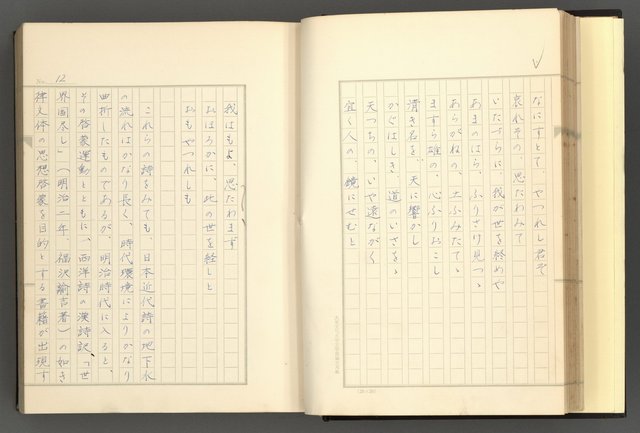 なにすとて、やつれし君ぞ
哀れその、思たわみて
いたづらに、我が世を終めや
あまのはら、ふりさけ見つゝ
あらがねの、土ふみたてゝ
ますら雄の、心ふりおこし
清き名を、天に響かし
かぐはしき、道のいさをゝ
天つちの、いや遠ながく
宜く人の、鏡にせむと
我はもよ、思たわまず
おほろかに、此の世を経しと
おもやつれしも
これらの詩をみても、日本近代詩の地下水
の流れはかなり長く、時代環境によりかなり
曲折したものであるが、明治時代に入ると、
その啓蒙運動とともに、西洋詩の漢詩訳「世
界国尽し」（明治二年、福沢諭吉著）の如き
律文体の思想啓蒙を目的とする書籍が出現す
No. 12